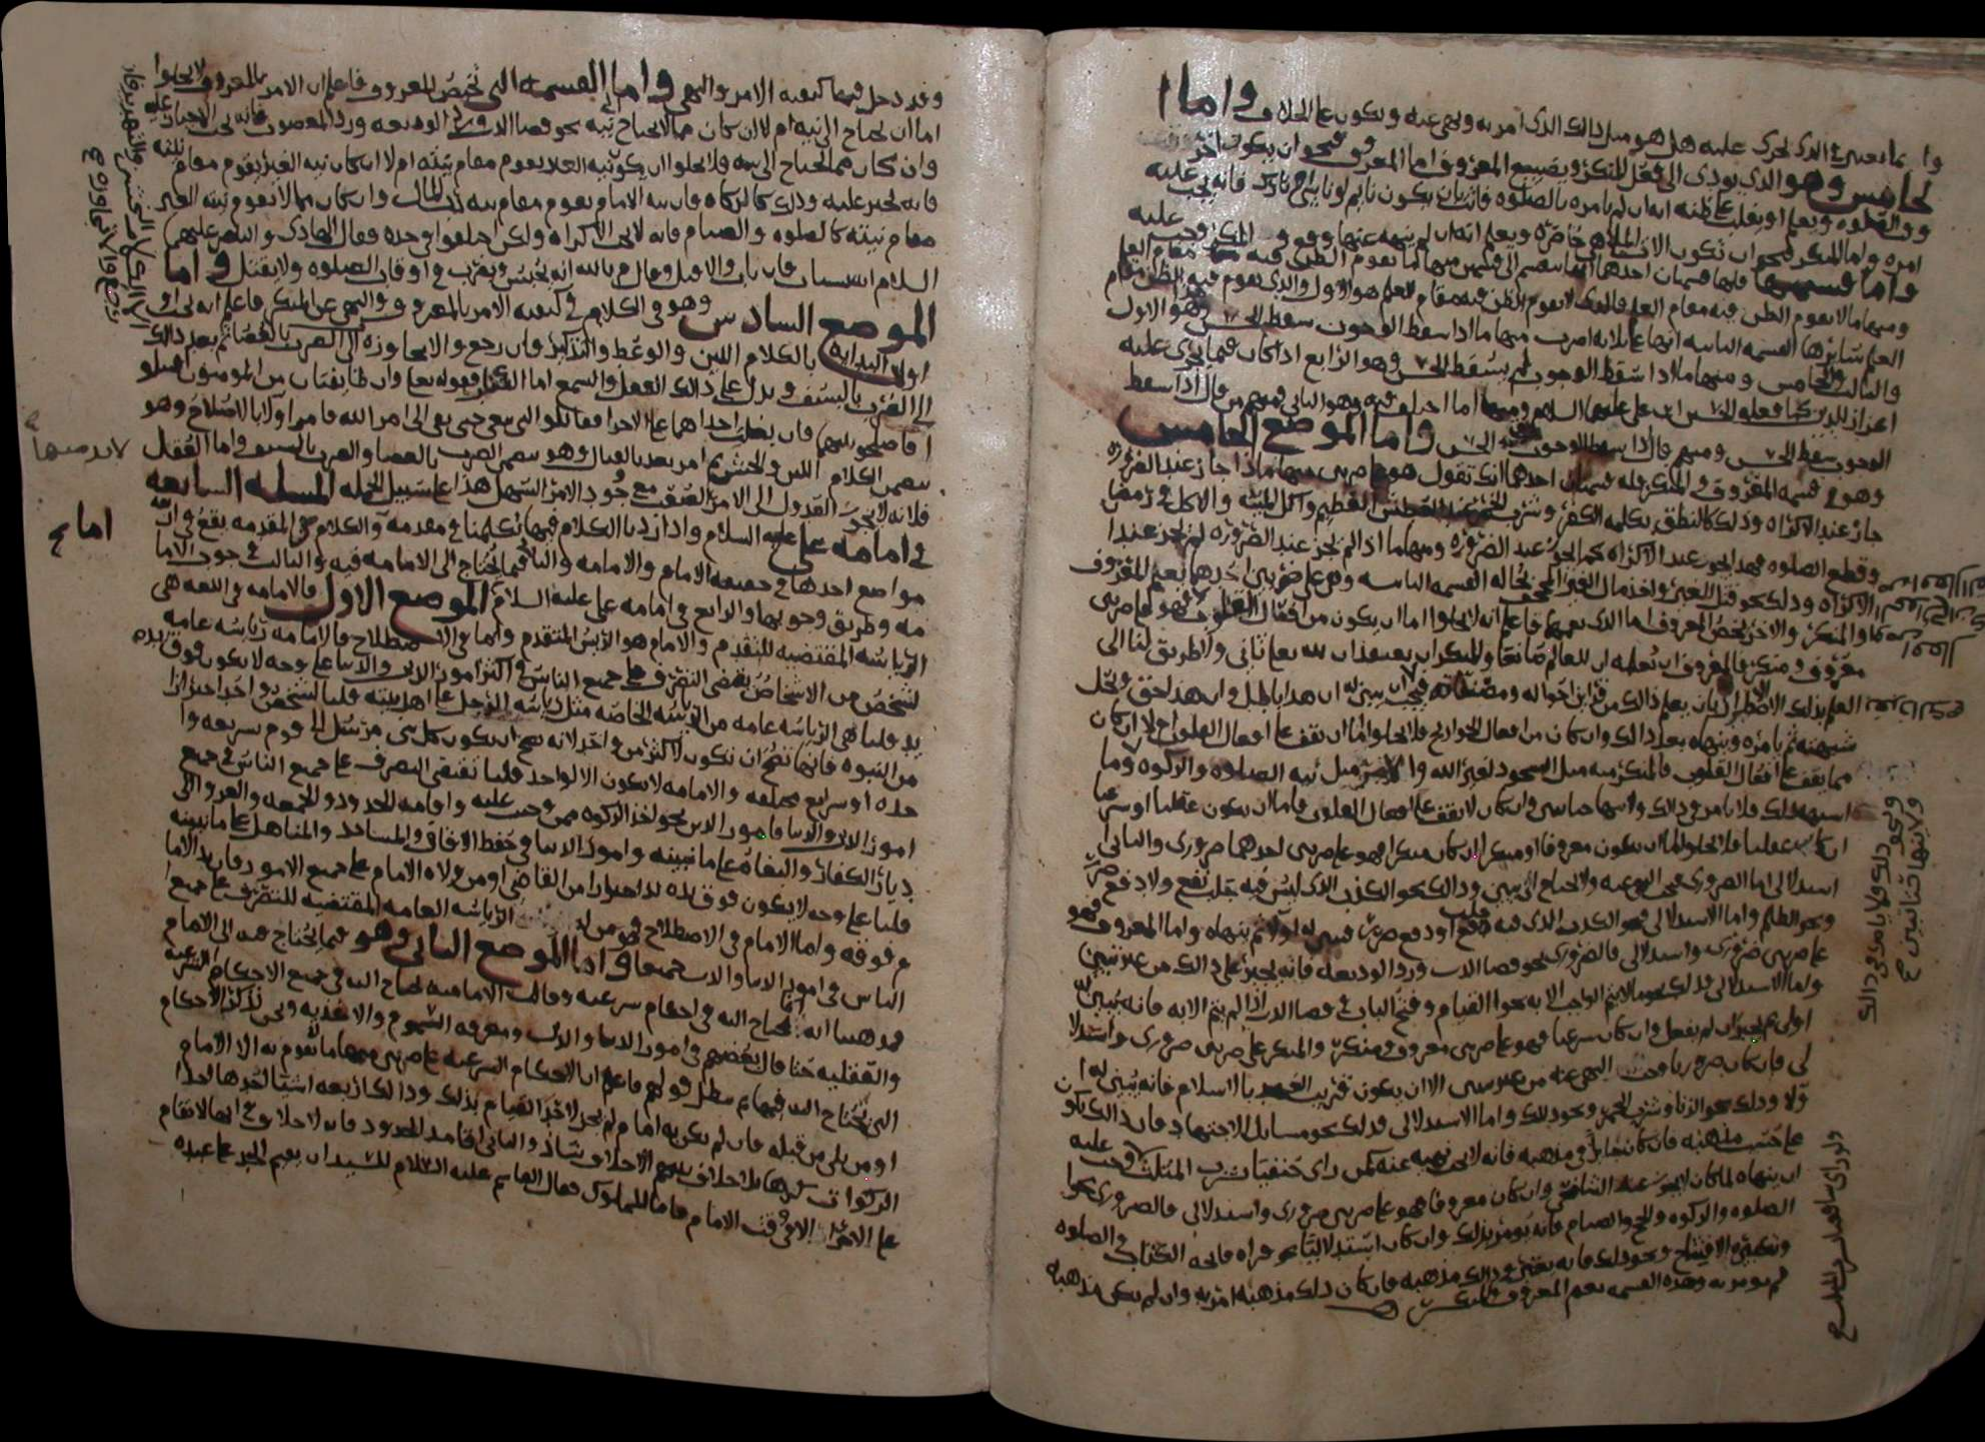 وانما تعين في الذي يجري عليه هل هو مثل ذلك الذي امر به ونهي عنه ويكون على الخلاف واما ا
لخامس وهو الذي يودي الى فعل المنكر وتضييع المعروف اما المعروف فنحو ان يكون اخر
وقت الصلوه ويعلم او يغلب على ظنه انه ان لم يامره بالصلوه فاتت بان يكون نايم
امره واما المنكر فنحو ان تكون الات الملاهي حاضره ويعلم انه ان لم ينهه عنها وقع في المنكر وجب عليه
واما قسمتها فلها قسمتان احدهما انها تنقسم الى قسمين منها ما يقوم الظن فيه مقام العلم
ومنها ما لا يقوم الظن فيه مقام العلم فالذي لا يقوم الظن فيه مقام العلم هو الاول والذي يقوم فيه الظن مقام
العلم سايرها القسمه الثانيه انها على ثلاثه اضرب منها ما اذا سقط الوجوب سقط الحسن وهو الاول
والثالث والخامس ومنها ما اذا سقط الوجوب لم يسقط الحسن وهو الرابع اذا كان فيما يجري عليه
اعزاز للدين كما فعله الحسين ابن علي عليهما السلام ومنها ما اختلف فيه وهو الثاني فمنهم من قال اذا سقط
الوجوب سقط الحسن ومنهم من قال اذا سقط الوجوب بقي الحسن واما الموضع الخامس
وهو في قسمه المعروف والمنكر فله قسمتان احدهما انك تقول هو على ضربين منها ما اذا جاز عند الضروره
جاز عند الاكراه وذلك كالنطق بكلمه الكفر وشرب الخمر عند العطش العظيم واكل الميته والاكل في رمضان
وقطع الصلوه فهذا يجوز عند الاكراه كما يجوز عند الضروره ومنها ما اذا لم يجز عند الضروره لم يجز عند ا
الاكراه وذلك نحو قتل الغير واخذ مال الغير المجحف بحاله القسمه الثانيه وهي على ضربين احدهما يعم المعروف
والمنكر والاخر يخص المعروف اما الذي يعمهما فاعلم انه لا يخلوا اما ان يكون من افعال القلوب فهو على ضربين
معروف ومنكر فالمعروف ان تعلم ان للعالم صانعا والمنكر ان يعتقد ان لله تعالى ثاني ولا طريق لنا الى
العلم بذلك الا الاضطرار بان يعلم ذلك من قراين احواله ومصنفاته فيجب ان يبين له ان هذا باطل وان هذا حق ويحل
شبهته ثم يامره وينهاه بعد ذلك وان كان من افعال الجوارح فلا يخلوا اما ان تقف على افعال القلوب ام لا ان كان
مما يقف على افعال القلوب فالمنكر منه مثل السجود لغير الله والامر مثل نيه الصلوه والزكوه وما
اشبه ذلك فلا يامر في ذلك ولا ينها حتى يتبين وان كان لا يقف على افعال القلوب فاما ان يكون عقليا او شرعيا
ان كان عقليا فلا يخلوا اما ان يكون معروفا او منكرا ان كان منكرا فهو على ضربين احدهما ضروري والثاني
استدلالي اما الضروري فيجب النهي عنه ولا يحتاج الى تبيين وذلك نحو الكذب الذي ليس فيه جلب نفع ولا دفع ضرر
ونحو الظلم واما الاستدلالي فهو الكذب الذي فيه جلب نفع او دفع ضرر فيبين له اولا ثم ينهاه واما المعروف فهو
على ضربين ضروري واستدلالي فالضروري نحو قضا الدين ورد الوديعه فانه يجبر على ذلك من غير تبيين
واما الاستدلالي فذلك نحو ما لا يتم الواجب الا به نحوا القيام وفتح الباب في قضا الدين اذا لم يتم الا به فانه يبين له
اولا ثم يجبر ان لم يفعل وان كان شرعيا فهو على ضربين معروف ومنكر والمنكر على ضربين ضروري واستدلا
لي فان كان ضروريا وجب النهي عنه من غير تبيين الا ان يكون قريب العهد بالاسلام فانه يبين له ا
ولا وذلك نحو الزنا وشرب الخمر ونحو ذلك واما الاستدلالي فذلك نحو مسايل الاجتهاد فان ذلك يكون
على حسب مذهبه فان كان جايزا في مذهبه فانه لا يجب نهيه عنه كمن راى حنفيا شرب المثلث وجب عليه
ان ينهاه لما كان لا يجوز عند الشافعي وان كان معروفا فهو على ضربين ضروري واستدلالي فالضروري نحوا
الصلوه والزكوه والحج والصيام فانه يومر بذلك وان كان استدلاليا نحو قراه فاتحه الكتاب في الصلوه
وتكبيره الافتتاح ونحو ذلك فانه يعتبر في ذلك مذهبه فان كان ذلك مذهبه امر به وان لم يكن مذهبه
لم يومر به وهذه القسمه تعم المعروف والمنكر
وقد دخل فيها كيفيه الامر والنهي واما القسمه التي تخص المعروف فاعلم ان الامر بالمعروف لا يخلوا
اما ان يحتاج الى نيه ام لا ان كان مما لا يحتاج الى نيه نحو قضا الدين ورد الوديعه ورد المغصوب فانه يجب الاجبار عليه
وان كان مما يحتاج الى نيه فلا يخلوا ان يكون نيه الغير يقوم مقام نيته ام لا ان كان نيه الغير يقوم مقام نيته
فانه يجبر عليه وذلك كالزكاه فان نيه الامام يقوم مقام نيه رب المال وان كان مما لا تقوم نيه الغير
مقام نيته كالصلوه والصيام فانه لا يجب الاكراه ولكن اختلفوا في حده فقال الهادي والناصر عليهما
السلام انه يستتاب فان تاب والا قتل وقال م بالله انه يحبس ويضرب في اوقات الصلوه ولا يقتل واما
الموضع السادس وهو في الكلام في كيفيه الامر بالمعروف والنهي عن المنكر فاعلم انه يجب او
اولا البدايه بالكلام اللين والوعظ والتذكير فان رجع والا يجاوزه الى الضرب بالعصا ثم بعد ذلك
الى الضرب بالسيف ويدل على ذلك العقل والسمع اما السمع فقوله تعالى وان طايفتان من المومنين اقتتلوا
فاصلحوا بينهما فان بغت احداهما على الاخرى فقاتلوا التي تبغي حتى تفي الى امر الله فامر اولا بالاصلاح وهو
يتضمن الكلام اللين والخشن ثم امر بعد بالقتال وهو يتضمن الضرب بالعصا والضرب بالسيف واما العقل
فلانه لا يجوز العدول الى الامر الصعب مع وجود الامر السهل هذا على سبيل الجمله المسله السابعه
في امامه علي عليه السلام واذا اردنا الكلام فيها تكلمنا في مقدمه والكلام في المقدمه يقع في اربعه
مواضع احدها في حقيقه الامام والامامه والثاني فيما يحتاج الى الامامه فيه والثالث في وجوب الاما
مه وطريق وجوبها والرابع في امامه علي عليه السلام الموضع الاول فالامامه في اللغه هي
الرياسه المقتضيه للتقدم والامام هو الريس المتقدم واما في الاصطلاح فالامامه رياسه عامه
لشخص من الاشخاص يقتضي التصرف على جميع الناس في اكثر امور الدين والدنيا على وجه لا يكون فوق يده
يد قلنا هي الرياسه عامه من الرياسه الخاصه مثل رياسه الرجل على اهل بيته قلنا لشخص واحد احترازا
من النبوه فانها تصح ان تكون لاكثر من واحد لانه يصح ان يكون كل نبي مرسل الى قوم بشريعه وا
حده او شرايع مختلفه والامامه لا يكون الا لواحد قلنا تقتضي التصرف على جميع الناس في جميع
امور الدين والدنيا فامور الدين نحو اخذ الزكوه ممن وجبت عليه واقامه الحدود والجمعه والغزو الى
ديار الكفار والبغاه على ما نبينه وامور الدنيا في حفظ الاوقاف والمساجد والمناهل على ما نبينه
قلنا على وجه لا يكون فوق يده يد احترازا من القاضي او من ولاه الامام على جميع الامور فان يد الاما
م فوقه واما الامام في الاصطلاح فهو من له الرياسه العامه المقتضيه للتصرف على جميع
الناس في امور الدنيا والدين جميعا واما الموضع الثاني وهو فيما يحتاج فيه الى الامام
فمذهبنا انه انما يحتاج اليه في احكام شرعيه وقالت الاماميه يحتاج اليه في جميع الاحكام الشرعيه
والعقليه حتا قال بعضهم في امور الدنيا والدين ومعرفه السموم والاغذيه ونحن نذكر الاحكام
التي يحتاج اليه فيها ثم نبطل قولهم فاعلم ان الاحكام الشرعيه على ضربين منها ما لا يقوم به الا الامام
او من يلي من قبله فان لم يكن امام لم يجز لاحد القيام بذلك وذلك اربعه اشيا احدها اخذ ا
الزكوات كرها بلا خلاف بينهم الا خلاف شاذ والثاني اقامه الحدود فانه لا خلاف في انها لا تقام
على الاحرار الا في وقت الامام فاما المملوك فقال القاسم عليه السلام للسيد ان يقيم الحد على عبده